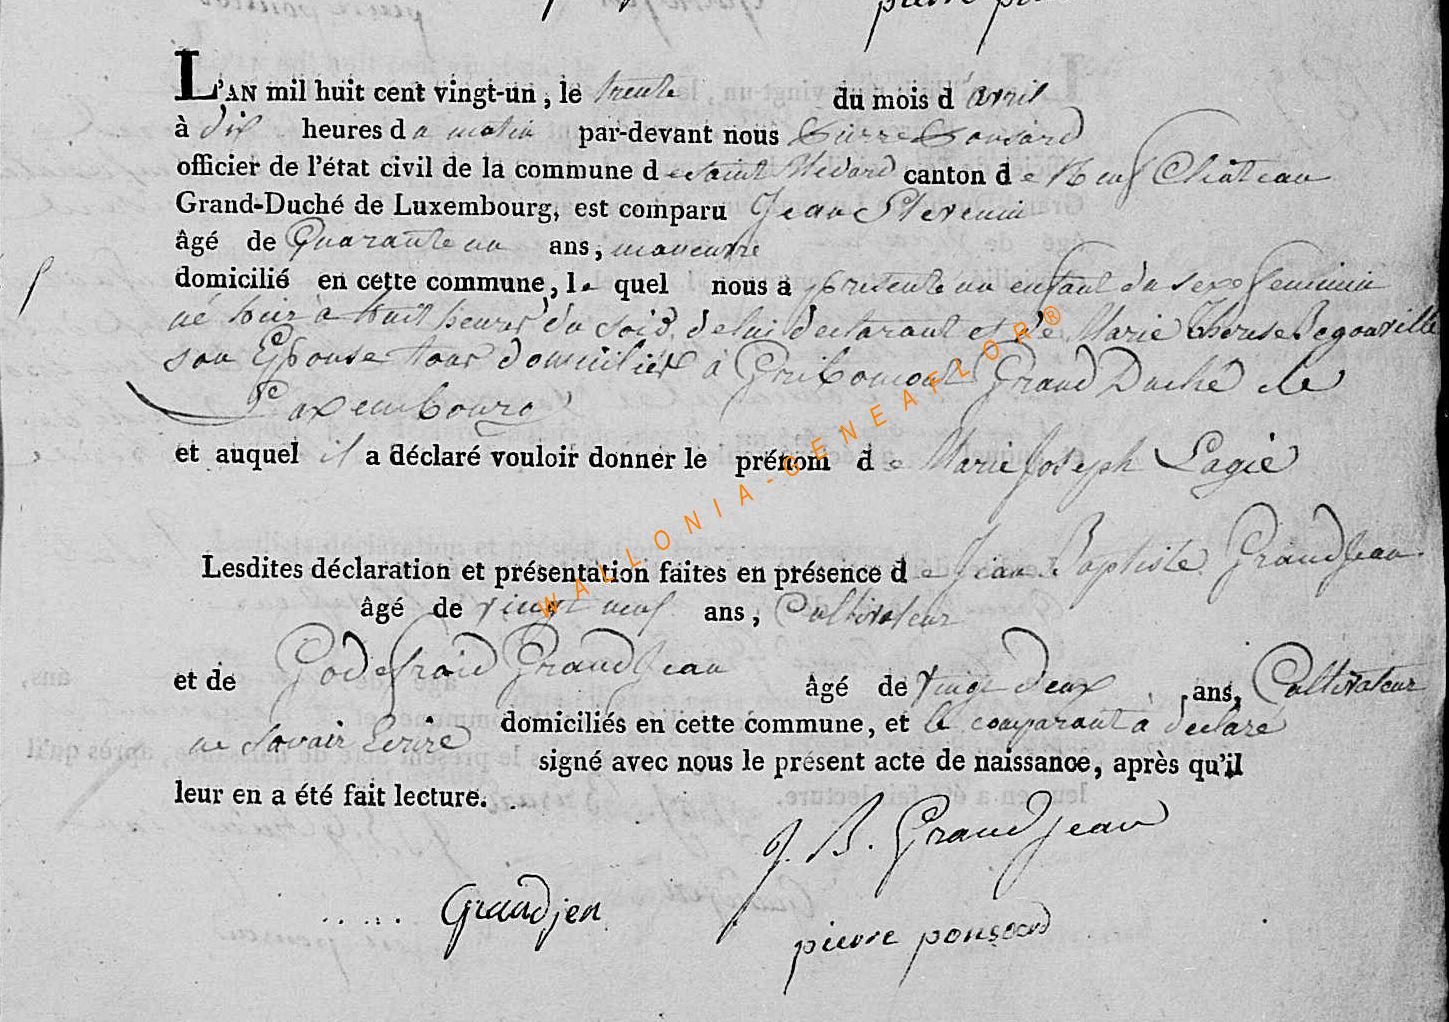 pierre
L'AN mil huit cent vingt-un, le trente du mois d'avril
à dix heures du matin par-devant nous Pierre Ponsard
officier de l'état civil de la commune de Saint Médard canton de Neuf Château
Grand-Duché de Luxembourg, est comparu Jean
âgé de Quarante un ans, manœuvre
domicilié en cette commune, le quel nous a presenté un enfant du sexe feminin
né hier à huit heures du soir, de lui declarant et de Marie Therese
son Epouse tous domiciliés à Gribomont Grand Duché de
Luxembourg
et auquel il a déclaré vouloir donner le prénom de Marie Joseph
Lesdites déclaration et présentation faites en présence de Jean Baptiste Grandjean
âgé de vingt neuf ans, Cultivateur
et de Godefroid Grandjean âgé de vingt deux ans, Cultivateur
domiciliés en cette commune, et le comparant à declaré
ne savoir Ecrire
signé avec nous le présent acte de naissance, après qu'il
leur en a été fait lecture.
J. B. Grandjean
Grandjen
pierre ponsard
WALLONIA-GENEAFLOR®